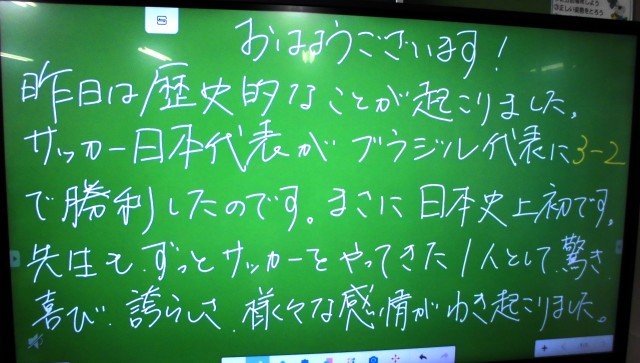 おはようございます!
昨日は歴史的なことが起こりました。
サッカー日本代表がブラジル代表に3-2
で勝利したのです。まさに日本史上初です。
先生も、ずっとサッカーをやってきた1人として、驚き、
喜び、誇らしさ、様々な感情がわき起こりました。